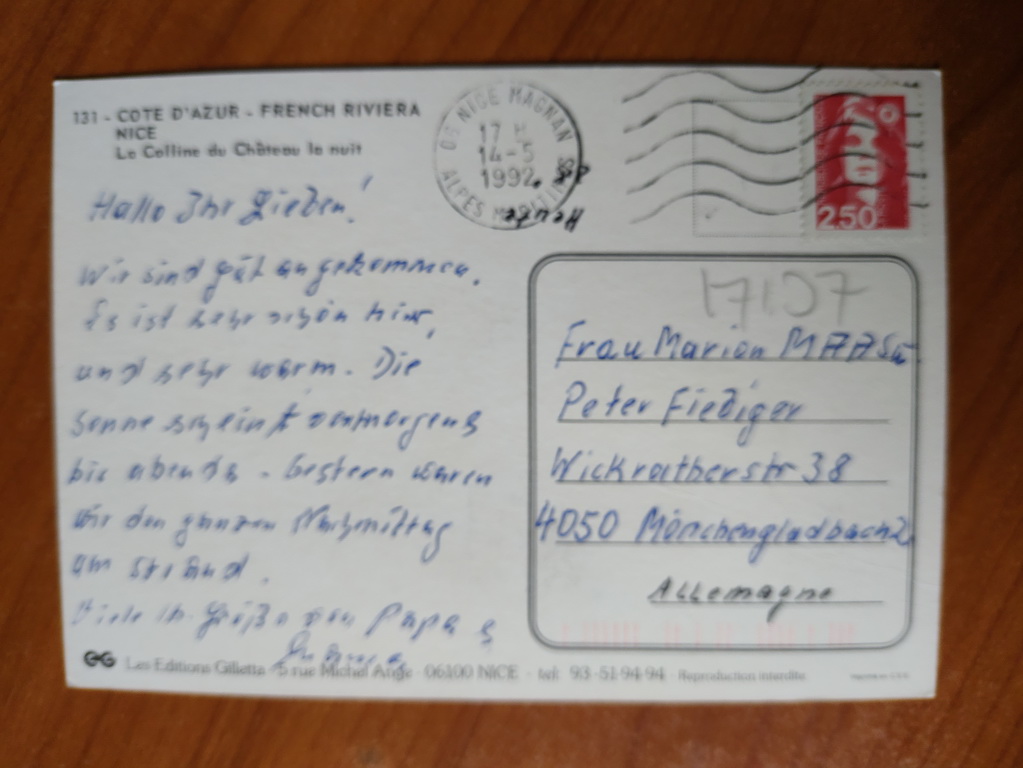 131 - COTE D'AZUR - FRENCH RIVIERA
NICE
La Colline du Château la nuit
06 NICE MAGNAN
17 H
14-5
1992
ALPES MARITIMES
2,50
Hallo Ihr Lieben!
Wir sind gut angekommen.
Es ist sehr schön hier,
und sehr warm. Die
Sonne scheint von morgens
bis abends. Gestern waren
wir den ganzen Nachmittag
am Strand.
Viele Grüße von Papa &
17107
Frau Marion
Peter Fiediger
Wickratherstr 38
4050 Mönchengladbach 2
Allemagne
Les Editions Gilletta - 5 rue Michel Ange - 06100 NICE - tél: 93-51-94-94 - Reproduction interdite